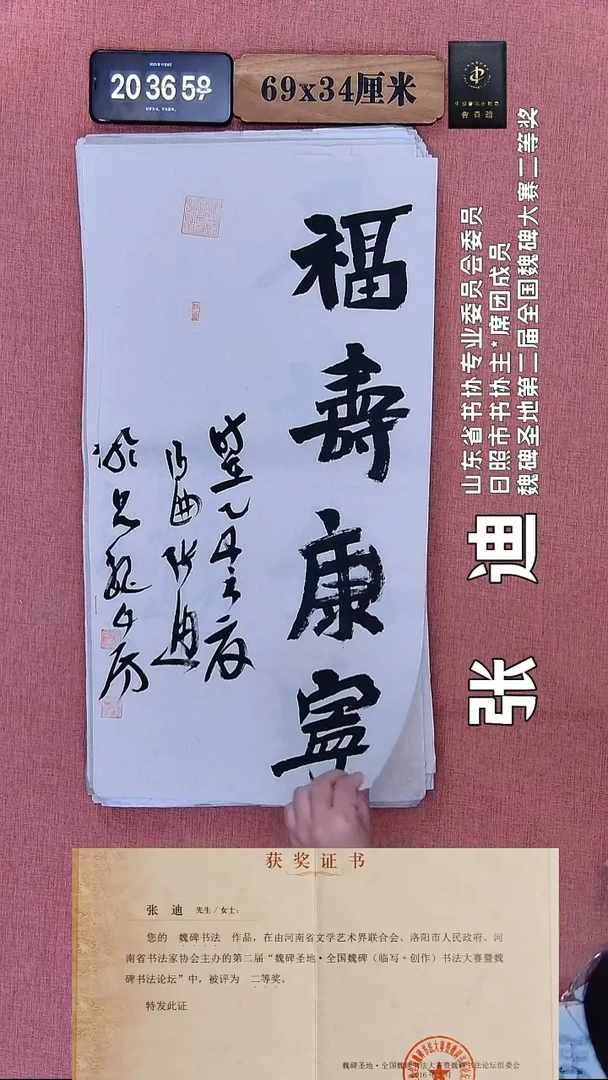 20 36 59
69x34厘米
福壽康寧
山东省书协专业委员会委员
日照市书协主*席团成员
魏碑圣地第二届全国魏碑大赛二等奖
张 迪
获奖证书
张 迪 先生/女士:
您的 魏碑书法 作品，在由河南省文学艺术界联合会、洛阳市人民政府、河
南省书法家协会主办的第二届“魏碑圣地·全国魏碑（临写+创作）书法大赛暨魏
碑书法论坛”中，被评为 二等奖。
特发此证
魏碑圣地·全国魏碑书法大赛暨魏碑书法论坛组委会